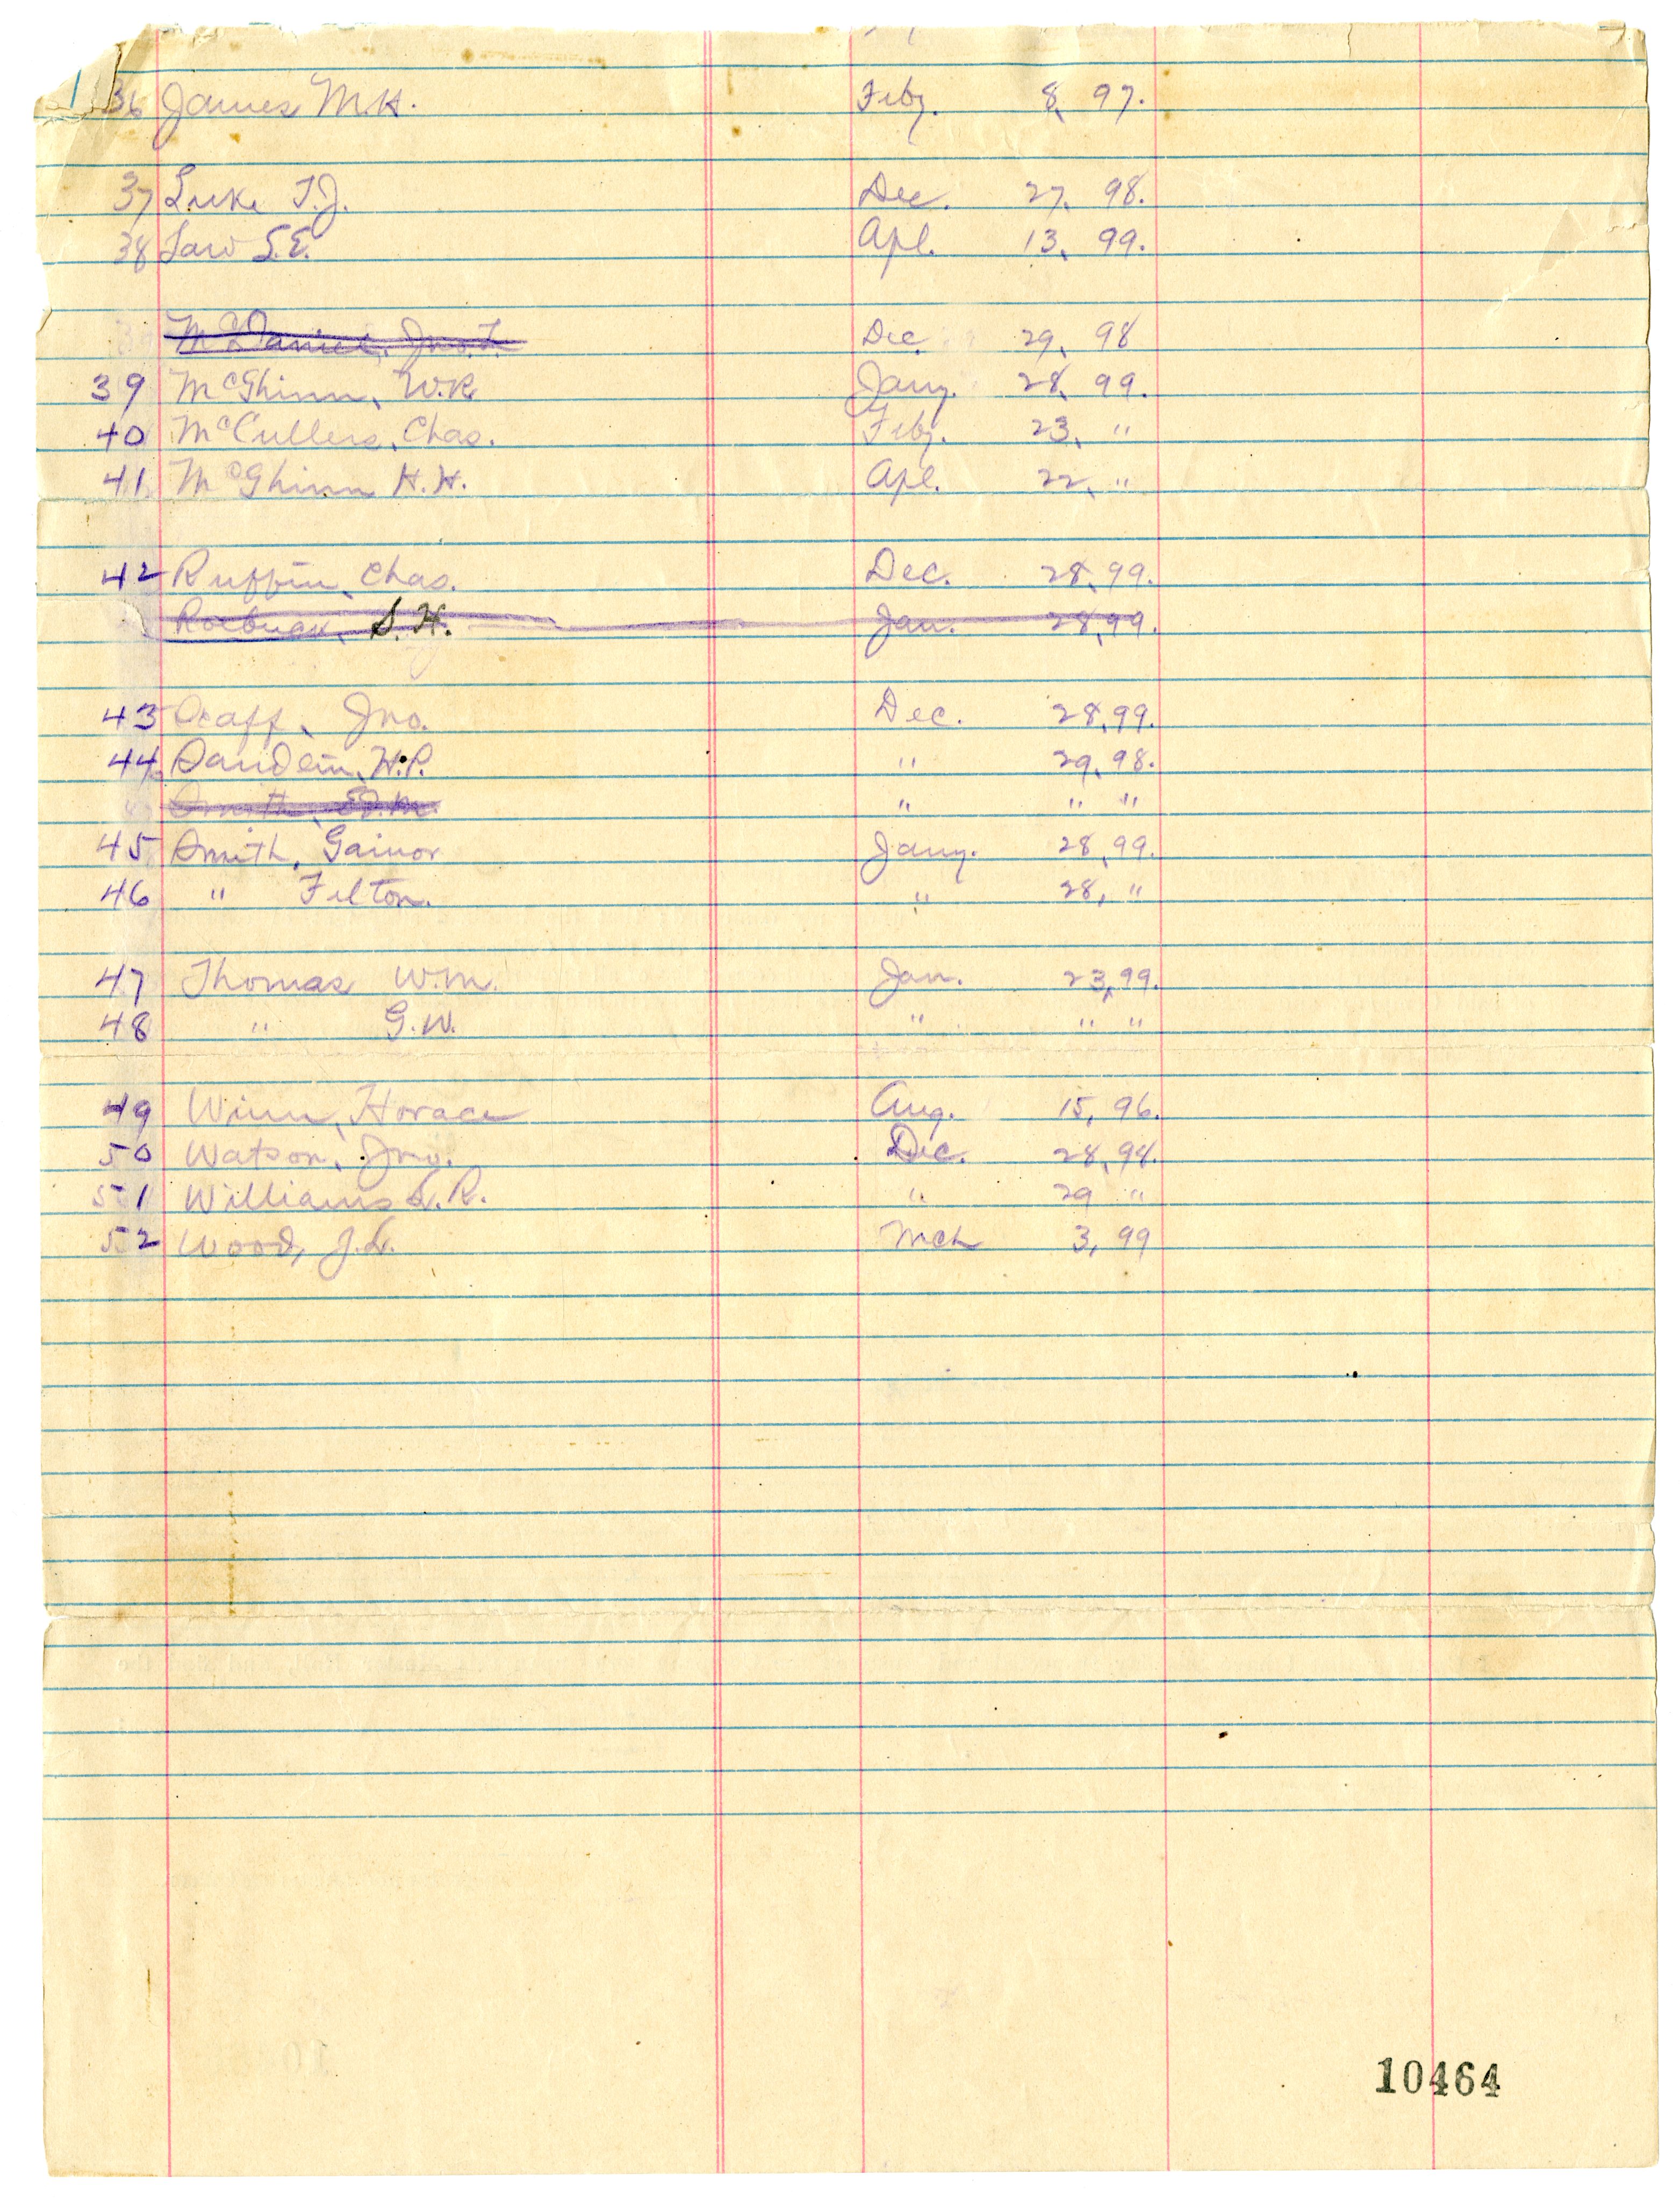 36 James M.H. Feby. 8, 97.
37 Luke T.J. Dec. 27, 98.
38 Law S.E. Apl. 13, 99.
McDaniel, Jno. T. Dec. 29, 98
39 McGhinn, W.R. Jany. 28, 99.
40 McCullers, Chas. Feby. 23, "
41 McGhinn H.H. Apl. 22, "
42 Ruffin, Chas. Dec. 28, 99.
Roebuck, S.H. Jan. 28, 99.
43 Jno. Dec. 28, 99.
44 H.P. " 29, 98.
Smith, Ed. M. " " "
45 Smith, Gainor Jany. 28, 99.
46 " Felton. " 28, "
47 Thomas W.M. Jan. 23, 99.
48 " G.W. " " "
49 Winn, Horace Aug. 15, 96.
50 Watson, Jno. Dec. 28, 98.
51 Williams L.R. " 29 "
52 Wood, J.L. Mch 3, 99
10464